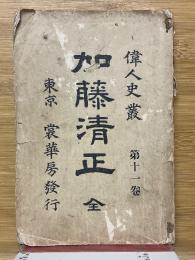 偉人史叢
第十一卷
加藤清正 全
東京 裳華房發行